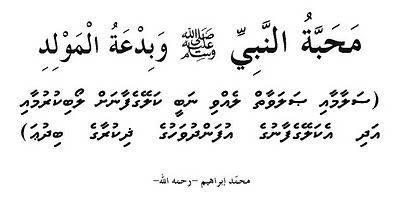 مَحَبَّةُ النَّبِيِّ ﷺ وَبِدْعَةُ الْمَوْلِدِ
(ސަލާމާއި ޞަލަވާތް ލެއްވި ނަބީ ކަލޭގެފާނަށް ލޯބިކުރުމާއި
އަދި އެކަލޭގެފާނުގެ އުފަންދުވަހުގެ ޛިކުރާގެ ބިދުޢަ)
-محمّد إبراهيم -رحمه الله